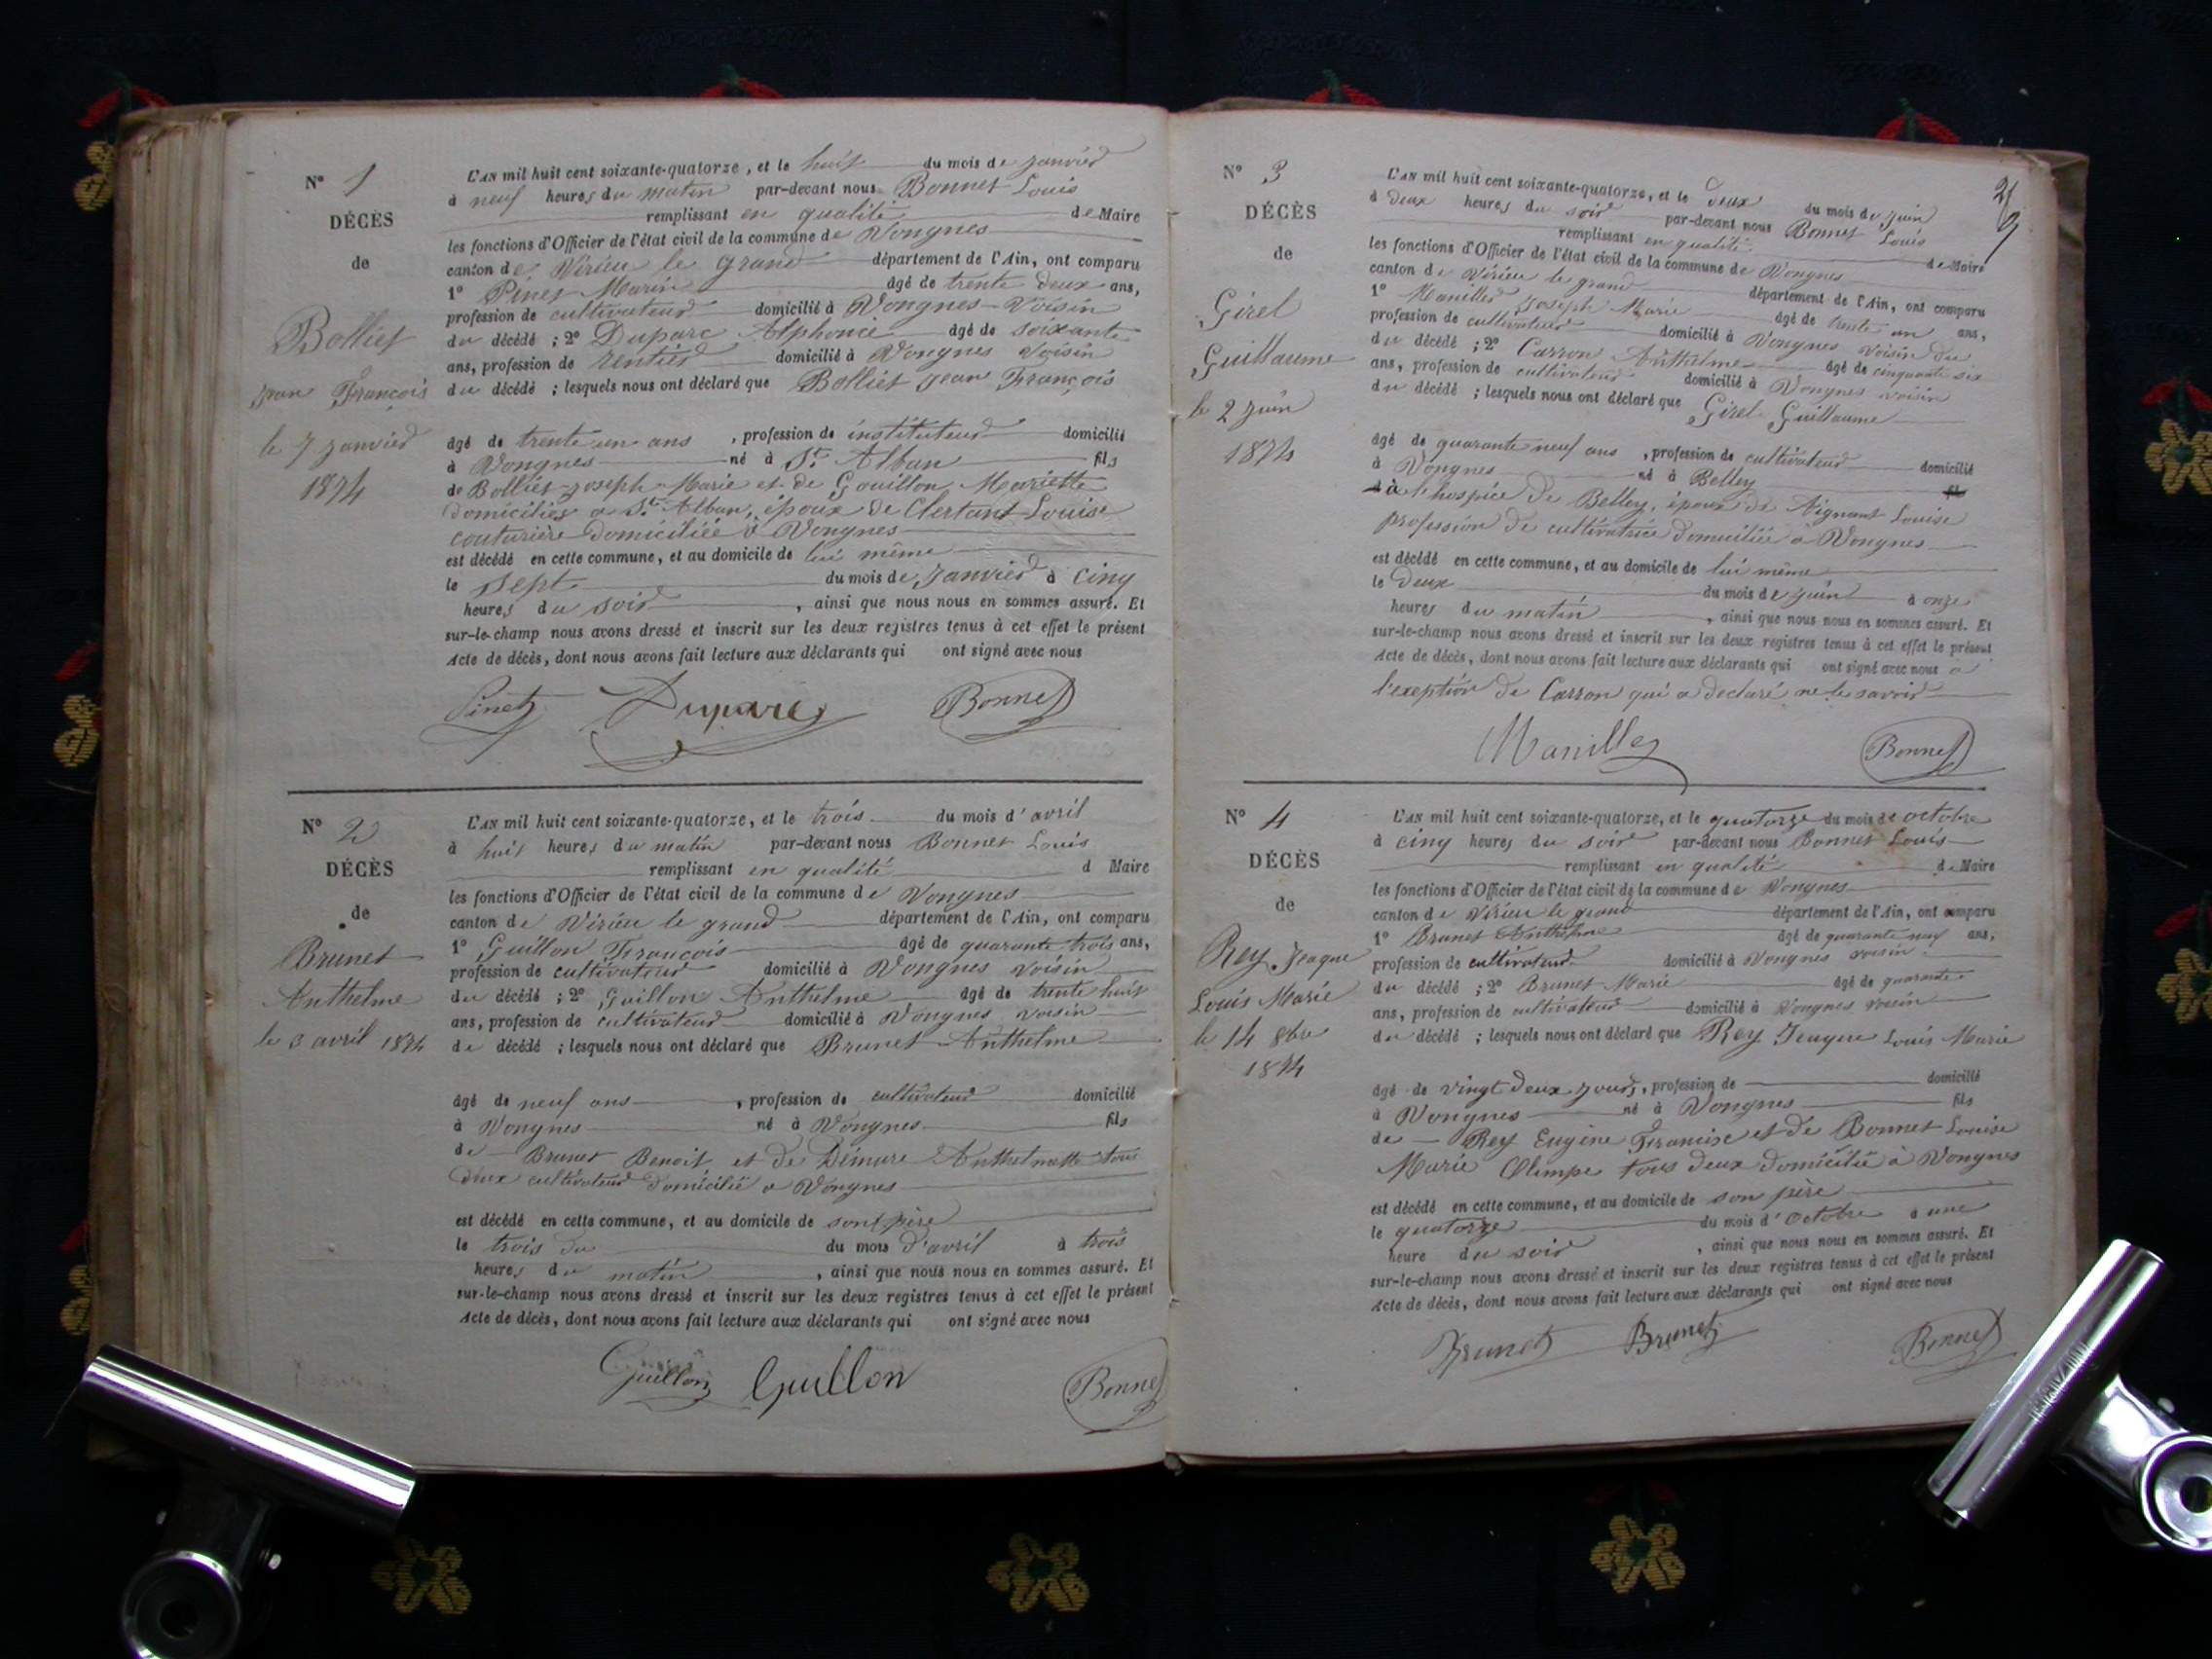 N° 1
DÉCÈS
de
Bolliet
Jean François
le 7 janvier
1874
L'AN mil huit cent soixante-quatorze, et le huit du mois de janvier
à neuf heures du matin par-devant nous Bonnet Louis
remplissant en qualité de Maire
les fonctions d'Officier de l'état civil de la commune de Vongnes
canton de Virieu le grand département de l'Ain, ont comparu
1° Pinet Marin âgé de trente deux ans,
profession de cultivateur domicilié à Vongnes voisin
du décédé ; 2° Duparc Alphonse âgé de soixante
ans, profession de rentier domicilié à Vongnes voisin
du décédé ; lesquels nous ont déclaré que Bolliet Jean François
âgé de trente un ans , profession de instituteur domicilié
à Vongnes né à St. Alban fils
de Bolliet Joseph Marie et de Gouillon Mariette
domiciliés a St. Alban, époux de Clertant Louise
couturière domiciliée à Vongnes
est décédé en cette commune, et au domicile de lui même
le sept du mois de janvier à cinq
heures du soir , ainsi que nous nous en sommes assuré. Et
sur-le-champ nous avons dressé et inscrit sur les deux registres tenus à cet effet le présent
Acte de décès, dont nous avons fait lecture aux déclarants qui ont signé avec nous
Pinet Duparc Bonnet
N° 2
DÉCÈS
de
Brunet
Anthelme
le 3 avril 1874
L'AN mil huit cent soixante-quatorze, et le trois du mois d'avril
à huit heures du matin par-devant nous Bonnet Louis
remplissant en qualité d Maire
les fonctions d'Officier de l'état civil de la commune de Vongnes
canton de Virieu le grand département de l'Ain, ont comparu
1° Guillon François âgé de quarante trois ans,
profession de cultivateur domicilié à Vongnes voisin
du décédé ; 2° Guillon Anthelme âgé de trente huit
ans, profession de cultivateur domicilié à Vongnes voisin
du décédé ; lesquels nous ont déclaré que Brunet Anthelme
âgé de neuf ans , profession de cultivateur domicilié
à Vongnes né à Vongnes fils
de Brunet Benoit et de Demure Anthelmette tous
deux cultivateur domicilié a Vongnes
est décédé en cette commune, et au domicile de sont père
le trois du du mois d'avril à trois
heures du matin , ainsi que nous nous en sommes assuré. Et
sur-le-champ nous avons dressé et inscrit sur les deux registres tenus à cet effet le présent
Acte de décès, dont nous avons fait lecture aux déclarants qui ont signé avec nous
Guillon Guillon Bonnet
N° 3
DÉCÈS
de
Girel
Guillaume
le 2 juin
1874
L'AN mil huit cent soixante-quatorze, et le deux du mois de juin
à deux heures du soir par-devant nous Bonnet Louis
remplissant en qualité de Maire
les fonctions d'Officier de l'état civil de la commune de Vongnes
canton de Virieu le grand département de l'Ain, ont comparu
1° Manillier Joseph Marie âgé de trente un ans,
profession de cultivateur domicilié à Vongnes voisin du
du décédé ; 2° Carron Anthelme âgé de cinquante six
ans, profession de cultivateur domicilié à Vongnes voisin
du décédé ; lesquels nous ont déclaré que Girel Guillaume
âgé de quarante neuf ans , profession de cultivateur domicilié
à Vongnes né à Belley
à l'hospice de Belley, époux de Vignant Louise
profession de cultivatrice domiciliée a Vongnes
est décédé en cette commune, et au domicile de lui même
le deux du mois de juin à onze
heures du matin , ainsi que nous nous en sommes assuré. Et
sur-le-champ nous avons dressé et inscrit sur les deux registres tenus à cet effet le présent
Acte de décès, dont nous avons fait lecture aux déclarants qui ont signé avec nous a
l'exeption de Carron qui a declaré ne le savoir
Bonnet
N° 4
DÉCÈS
de
Rey Jeaque
Louis Marie
le 14 8bre
1874
L'AN mil huit cent soixante-quatorze, et le quatorze du mois de octobre
à cinq heures du soir par-devant nous Bonnet Louis
remplissant en qualité de Maire
les fonctions d'Officier de l'état civil de la commune de Vongnes
canton de Virieu le grand département de l'Ain, ont comparu
1° Brunet Anthelme âgé de quarante neuf ans,
profession de cultivateur domicilié à Vongnes voisin
du décédé ; 2° Brunet Marie âgé de quarante
ans, profession de cultivateur domicilié à Vongnes voisin
du décédé ; lesquels nous ont déclaré que Rey Jeaque Louis Marie
âgé de vingt deux jours, profession de domicilié
à Vongnes né à Vongnes fils
de Rey Eugène Francise et de Bonnet Louise
Marie Olimpe tous deux domicilié à Vongnes
est décédé en cette commune, et au domicile de son père
le quatorze du mois d'octobre à une
heure du soir , ainsi que nous nous en sommes assuré. Et
sur-le-champ nous avons dressé et inscrit sur les deux registres tenus à cet effet le présent
Acte de décès, dont nous avons fait lecture aux déclarants qui ont signé avec nous
Brunet Brunet Bonnet